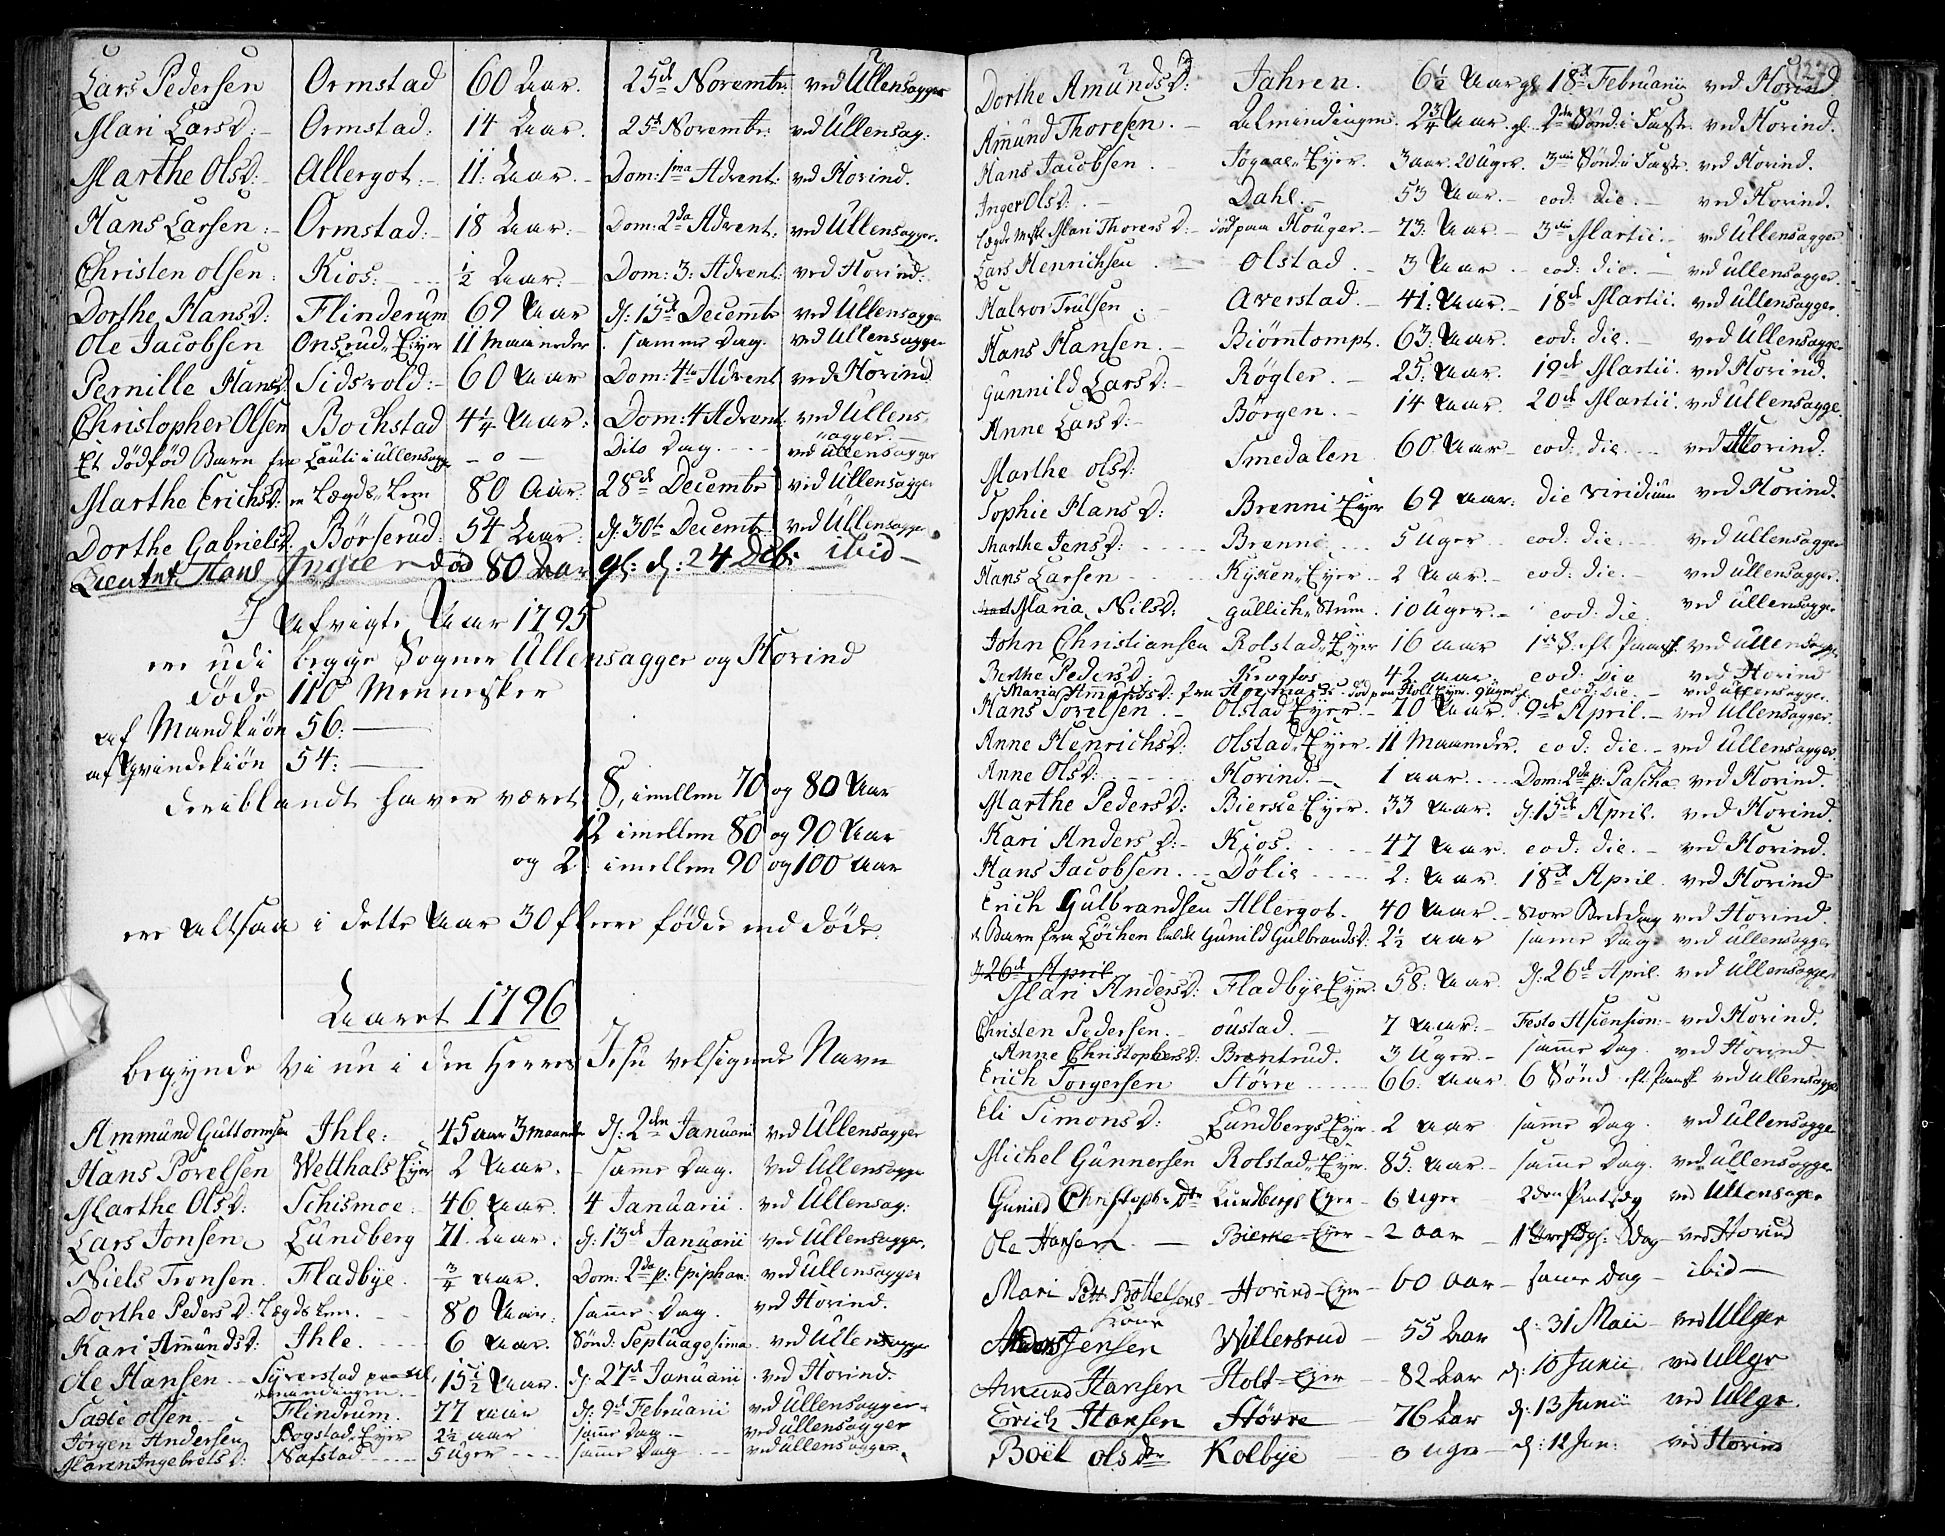 Lars Pedersen Ormstad 60 Aar. 25de Novembr: ved Ullensagger
Mari LarsD: Ormstad: 14 Aar. 25d Novembr: ved Ullensag:
Marthe OlsD: Allergot. 11: Aar. Dom: 1ma Advent: ved Hovind.
Hans Larsen Ormstad. 18 Aar. Dom: 2da Advent. ved Ullensagger.
Christen Olsen. Kios. ½ Aar. Dom: 3: Advent: ved Hovind.
Dorthe HansD: Flinderum 69 Aar d: 15d Decembr ved Ullensagger
Ole Jacobsen Onsrud Eyer 11 Maaneder samme Dag. ved Ullensagger
Pernille HansD: Sidsvold. 60 Aar Dom: 4ta Advent ved Hovind
Christopher Olsen Bochstad 4¼ Aar: Dom: 4 Advent ved Ullens-
agger.
Et dødfød Barn fra Lauti i Ullensagg - o - Dito Dag. ved Ullensagger
Marthe ErichsD: en Lægds Lem 80 Aar. 28de Decembr ved Ullensagger
Dorthe GabrielsD. Børserud: 54 Aar. d: 30t Decembr ved Ullensagger
Lieutnt Hans død 80 Aar gl: d: 24 Dec: ibid
I Afvigte Aar 1795
ere udi begge Sogner Ullensagger og Hovind
døde 110 Mennesker
af Mandkiøn 56:
af Qvindekiøn 54:
deriblandt haver været 8, imellem 70 og 80 Aar
12 imellem 80 og 90 Aar
og 2 imellem 90 og 100 Aar
ere Altsaa i dette Aar 30 flere fødde end døde.
Aaret 1796
begynde Vi nu i den Herres Jesu velsignede Navn
Ammund Guttormsen Ihle: 45 aar 3 maaneder d: 2den Januarii ved Ullensagger
Hans Povelsen Wetthals Eyer 2 Aar. same Dag. ved Ullensagger
Marthe OlsD: Schismoe 46 Aar. 4 Januarii. ved Ullensag:
Lars Jonsen Lundberg 71 Aar. d: 13d Januarii ved Ullensagger.
Niels Tronsen. Fladbye. ¾ aar. Dom: 2da p: Epiphan: ved Ullensagger
Dorthe PedersD: Lægds Lem. 80 Aar. samme Dag. ved Hovind.
Kari AmmundsD: Ihle. 6 Aar. Sønd: Septuagesima. ved Ullensagger
Ole Hansen Syverstad 15½ Aar. d: 27d Januarii. ved Hovind.
Olsen Flindrum. 77 Aar d: 9d Februarii ved Ullensagger
Jørgen Andersen Bogstad Eyer 2½ aar samme Dag. ved Ullensagger
Maren IngebretsD: Nafstad 5 Uger samme Dag ved Ullensagger.
127
Dorthe AmundsD: Jahren. 6½ Aar gl. 18d Februarii ved Hovind
Ammund Thoresen. Almindingen. 2¾ Aar. gl. 2den Sønd: i Faste. ved Hovind.
Hans Jacobsen. Eyer. 3 aar. 20 Uger. 3die Sønd: i Faste. ved Hovind.
Inger OlsD: Dahl. 53 Aar. eod: die. ved Hovind.
Lægds Mari ThorersD: død paa Houger. 73. Aar 3die Martii. ved Ullensagger
Lars Henrichsen Olstad. 3 Aar eod: die. ved Ullensagger.
Halvor Trulsen Averstad. 41. Aar. 18d Martii. ved Ullensagger.
Hans Hansen. Biørntompt. 63. Aar. eod: die. ved Ullensagger.
Gunnild LarsD: Røgler. 25. Aar. 19de Martii. ved Hovind.
Anne LarsD: Børgen. 14 Aar. 20de Martii. ved Ullensagge.
Marthe OlsD: Smedalen 60 Aar eod: die. ved Hovind.
Sophie HansD: Brenni Eyer 69 aar: die viridium ved Hovind.
Marthe JensD: Brenni 5 Uger eod: die. ved Ullensagger
Hans Larsen Kysen Eyer 2 Aar. eod: die. ved Ullensagger.
Maria NilsD: Gullich Stum. 10 Uger. eod: die. ved Ullensagger
John Christiansen Rolstad Eyer 16 aar 1ste S. eft Paaske ved Ullensagger
Berthe PedersD: Krogfos 42 aar eod: die ved Hovind
Maria AmmundsD: fra død paa Holt Eyer. 9 Uger gl. eod: die. ved Ullensagger.
Hans Povelsen Olstad Eyer. 10 Aar. 9de April. ved Ullensagger.
Anne HenrichsD: Olstad Eyer. 11 Maaneder. eod: die. ved Ullensagger
Anne OlsD: Hovind. 1 aar. Dom: 2da p: Pascha ved Hovind.
Marthe PedersD: Bierke Eyer. 33 Aar. d: 15de April. ved Hovind.
Kari AndersD: Kios. 47 Aar. eod: die. ved Hovind.
Hans Jacobsen. Dølie 2: Aar. 18de April. ved Hovind
Erich Gulbrandsen Allergot. 40 Aar. Store Bededag ved Hovind.
Barn fra Løchen kaldt Gunild GulbrandsD: 2½ aar same Dag. ved Ullensagger
d 26de April
Mari AndersD: Fladbye Eyer. 58: Aar. d: 26d April. ved Ullensagger
Christen Pedersen. Oustad. 7 Aar: Festo Ascension: ved Hovind.
Anne ChristophersD: Brøntrud. 3 Uger. samme Dag. ved Hovind
Erich Torgersen Større 66. Aar 6 Sønd eft Paaske ved Ullensagger
Eli SimonsD: Lundbergs Eyer. 2 aar samme Dag. ved Ullensagge
Michel Gunnersen Rolstad Eyer. 85: Aar. samme Dag. ved Ullensagge
Gunild Christophr Dtr Lundbergs Eyer 6 Uger 2den Pintsdg ved Ullensager
Ole Hansen Bierke Eyer 2 Aar ved Hovind
Mari Bottelsens Hovind Eyer 60 Aar samme dag ibid
kone
Jensen Willersrud 55 Aar d: 31 Maii ved Ullger
Amund Hansen Holt Eyer 82 Aar d: 10 Junii ved Ullgr
Errich Hansen Større 76 Aar d: 13 Junii ved Ullgr.
Boel Ols Dtr Kolbye 3 Uger d: 12 Jun: ved Hovind